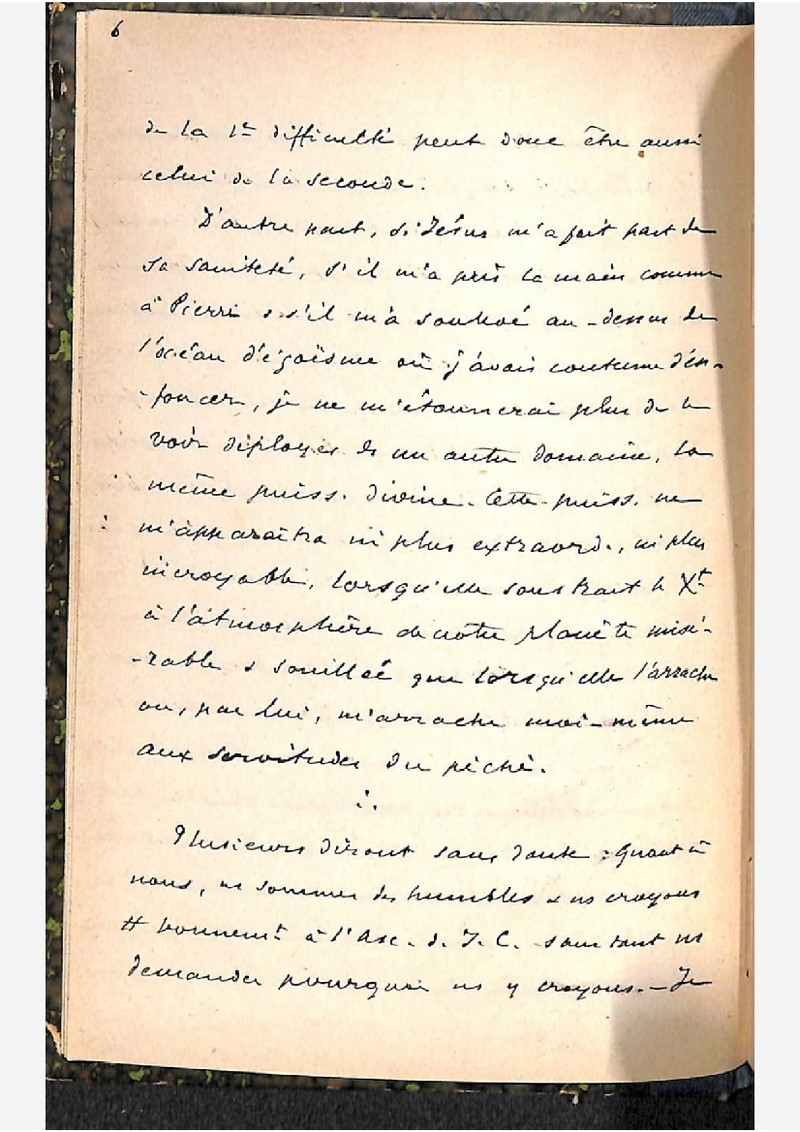 6
de la 1re difficulté peut donc être aussi
celui de la seconde.
D'autre part, si Jésus m'a fait part de
sa sainteté, s'il m'a pris la main comme
à Pierre & s'il m'a soulevé au-dessus de
l'océan d'égoïsme où j'avais coutume d'en-
-foncer, je ne m'étonnerai plus de le
voir déployer ds un autre domaine, la
même puiss. divine. Cette puiss. ne
m'apparaîtra ni plus extraord., ni plus
incroyable, lorsqu'elle soustrait le Xt
à l'atmosphère de notre planète misé-
-rable & souillée que lorsqu'elle l'arrache
ou, par lui, m'arrache moi-même
aux servitudes du péché.
∴
Plusieurs diront sans doute : Quant à
nous, ns sommes des humbles & ns croyons
# bonnemt à l'Asc. d. J. C. sans tant ns
demander pourquoi ns y croyons. — Je